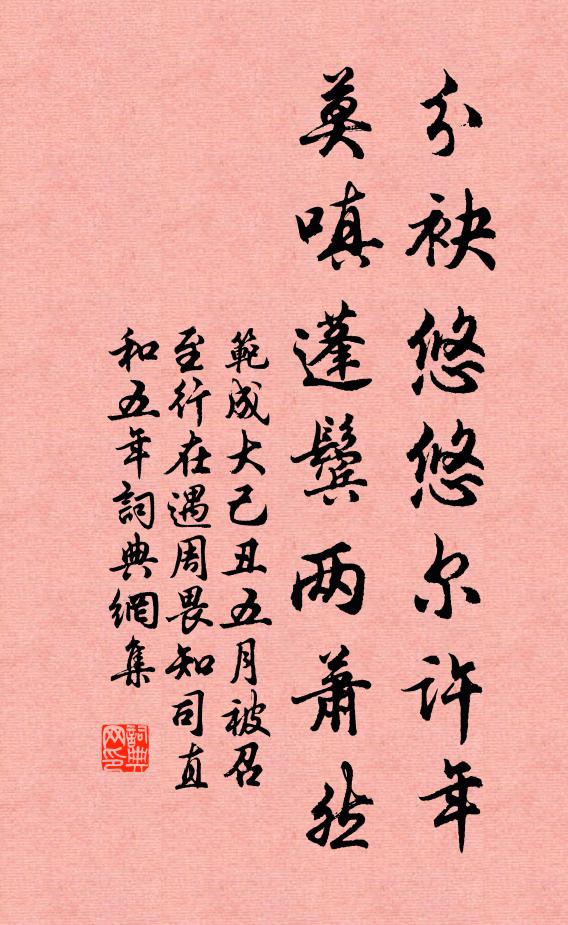 分袂悠悠尔許年
莫嗔蓬鬓两蕭然
範成大己丑五月被召
至行在遇周畏知司直
和五年詞典網集
詞典网印